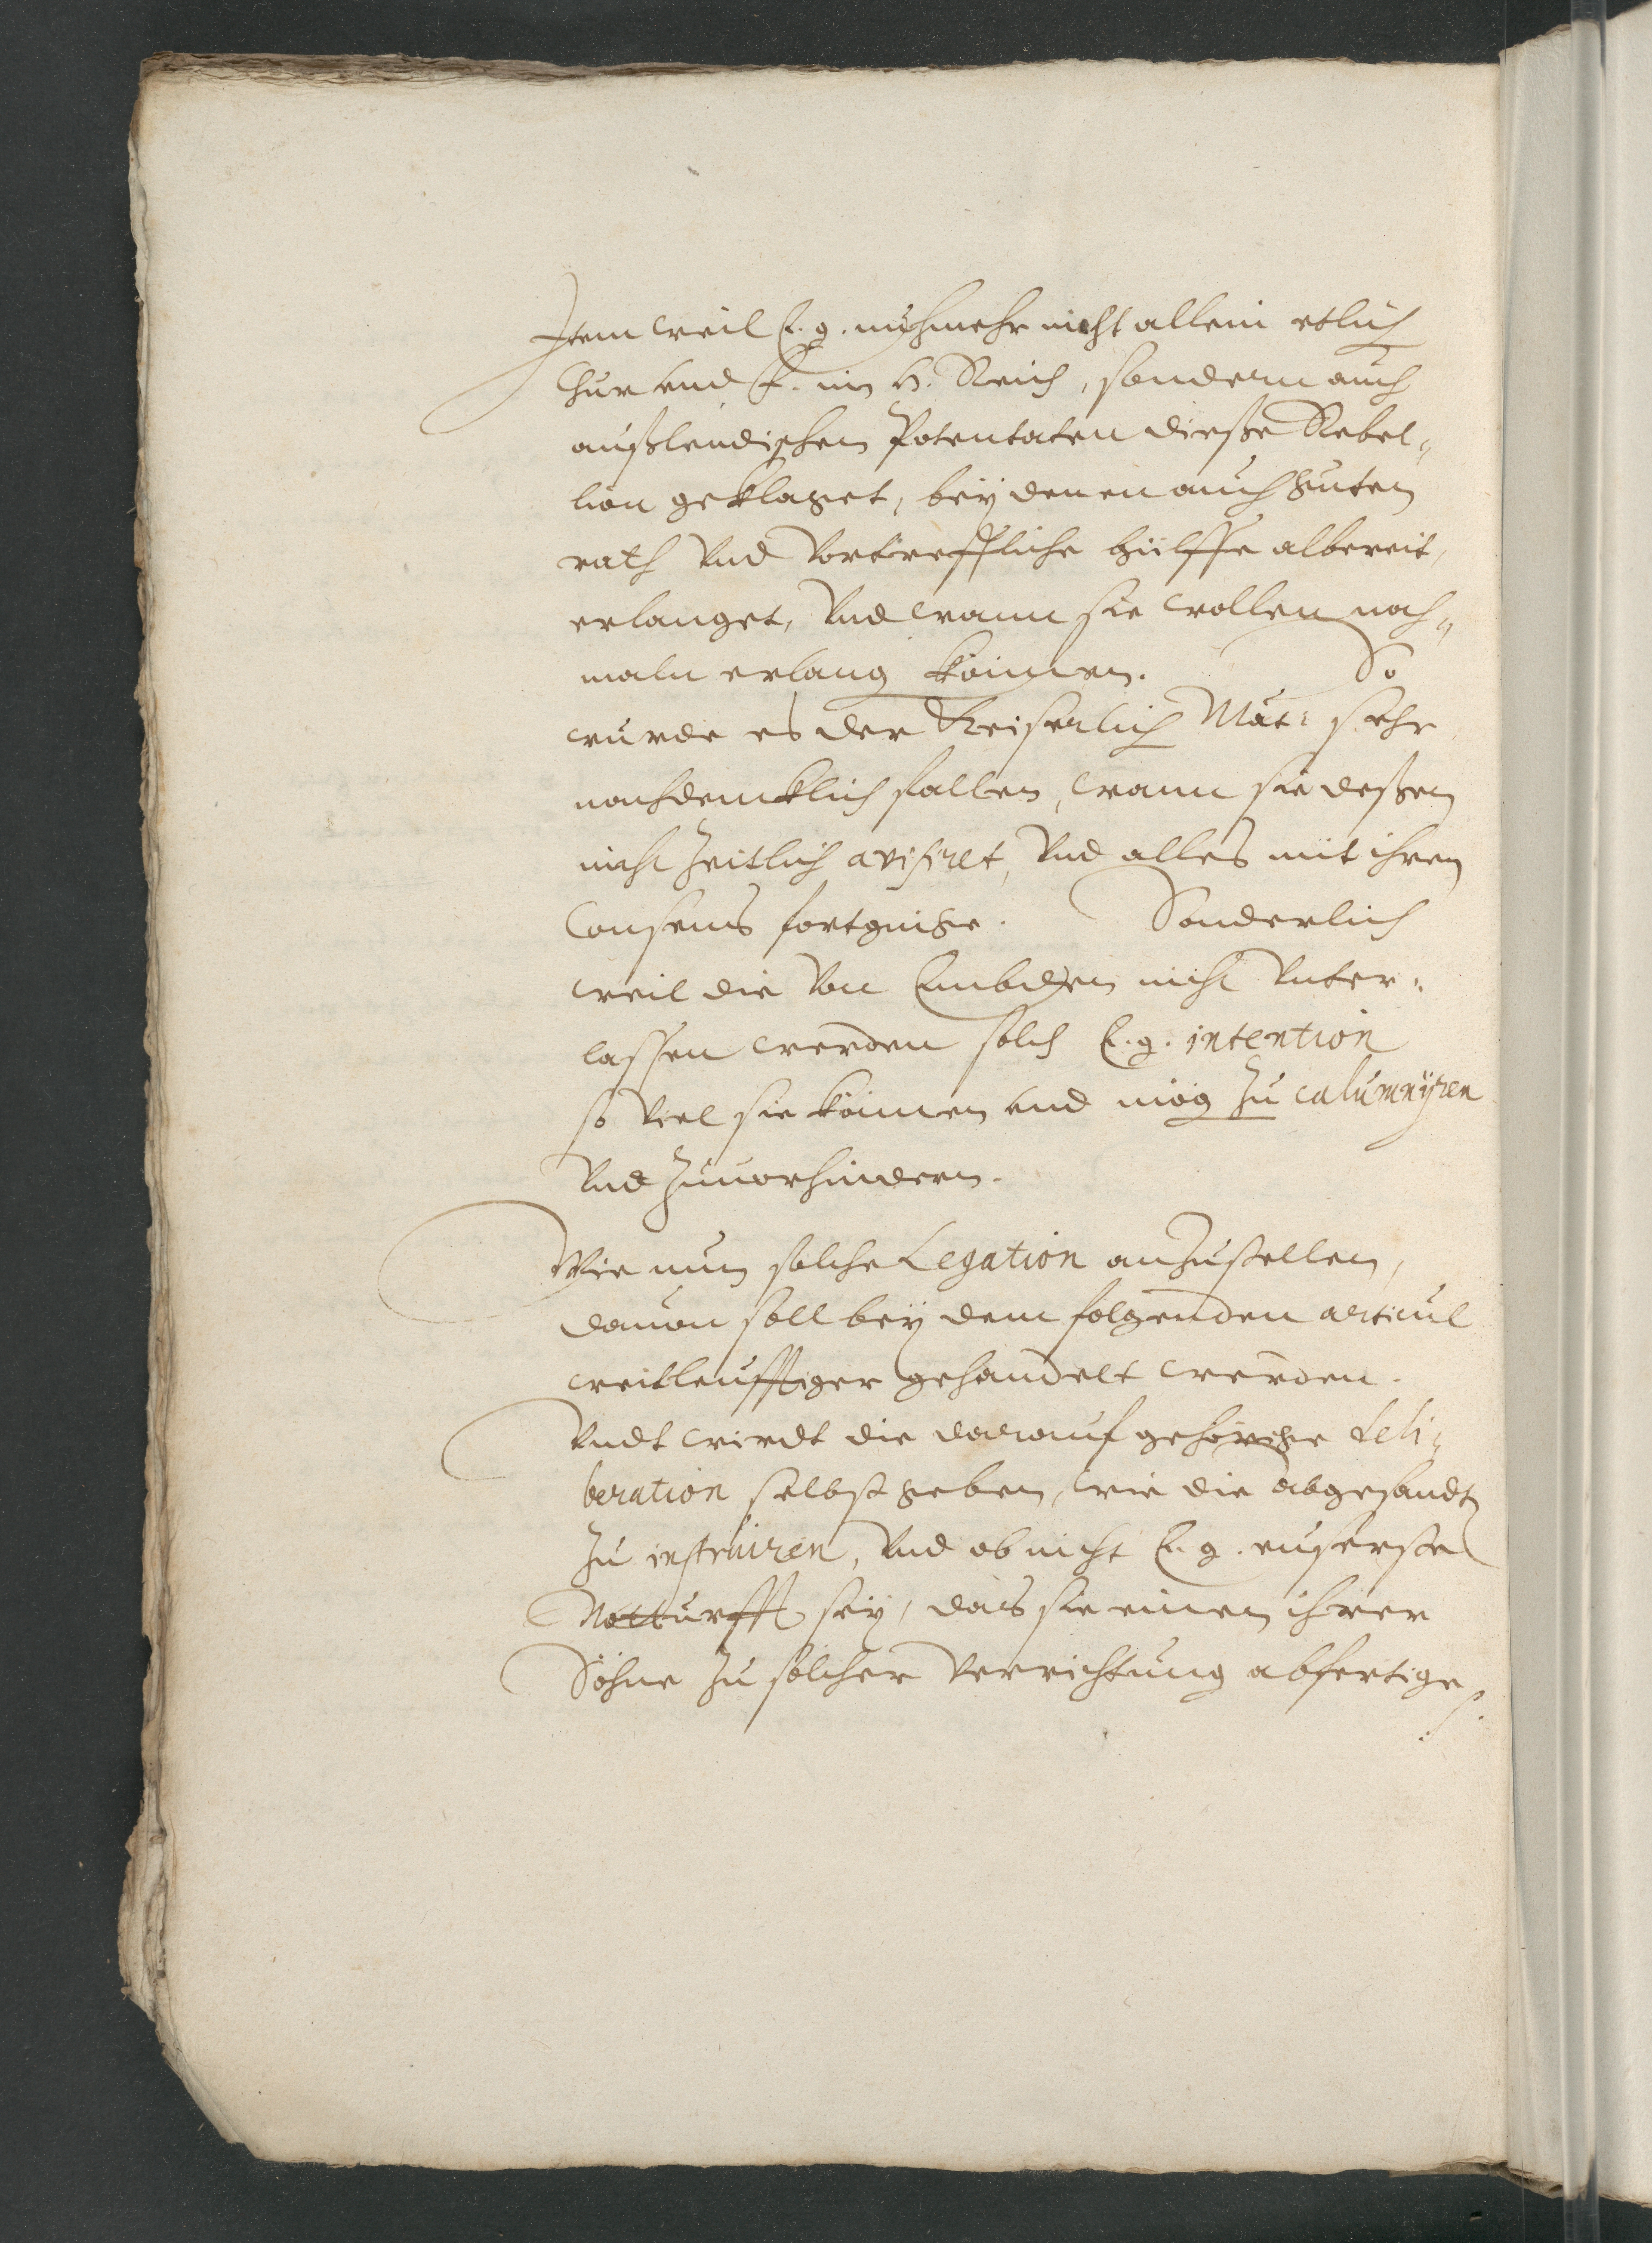 Item weil E. g. nuhmehr nicht allein etlich
Chur und F. im H. Reich, sondern auch
außlendischen Potentaten dieße Rebel„
lion geklaget, beÿ denen auch guten
rath Vnd Vortreffliche hülffe albereit,
erlanget, Vnd wann sie wollen noch„
maln erlang können. So
wurde es der Keiserlich Maÿt: sehr
nachdencklich fallen, wann sie deßen
nicht zeitlich avisiret, Vnd alles mit ihrem
Consens fortgienge. Sonderlich
weil die Von Embden nicht Vnter„
lassen werden solch E. g. intention
so Viel sie können vnd mög zu calumnÿren
Vnd zuuorhindern.
Wie nun solche Legation anzustellen,
dauon soll beÿ dem folgenden articul
weitleufftiger gehandelt werden.
Vndt wirdt die darauf gehörige deli„
beration selbst geben, wie die abgesandt
zu instruiren, Vnd ob nicht E. g. euserste
Notturfft seÿ, das sie einen ihrer
Söhne zu solcher Verrichtung abfertige